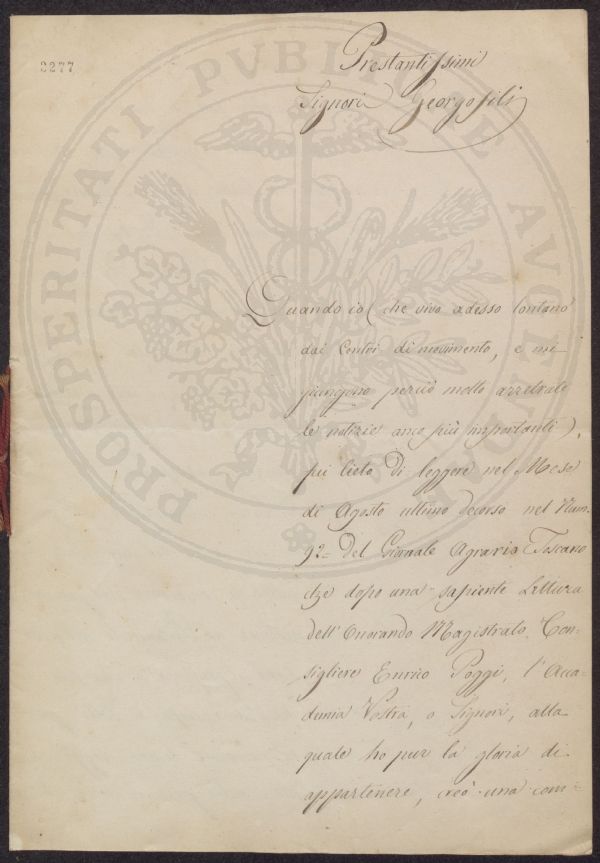 2277
Prestantissimi
Signori Georgofili
Quando io (che vivo adesso lontano
dai Centri di movimento, e mi
giungono perciò molto arretrate
le notizie anco più importanti),
fui lieto di leggere nel Mese
di Agosto ultimo decorso nel Num.
92= del Giornale Agrario Toscano
che dopo una sapiente Lettura
dell'Onorando Magistrato, Con-
sigliere Enrico Poggi, l'Acca-
demia Vostra, o Signori, alla
quale ho pur la gloria di
appartenere, creò una com-
PROSPERITATI PVBLICAE AVGENDAE